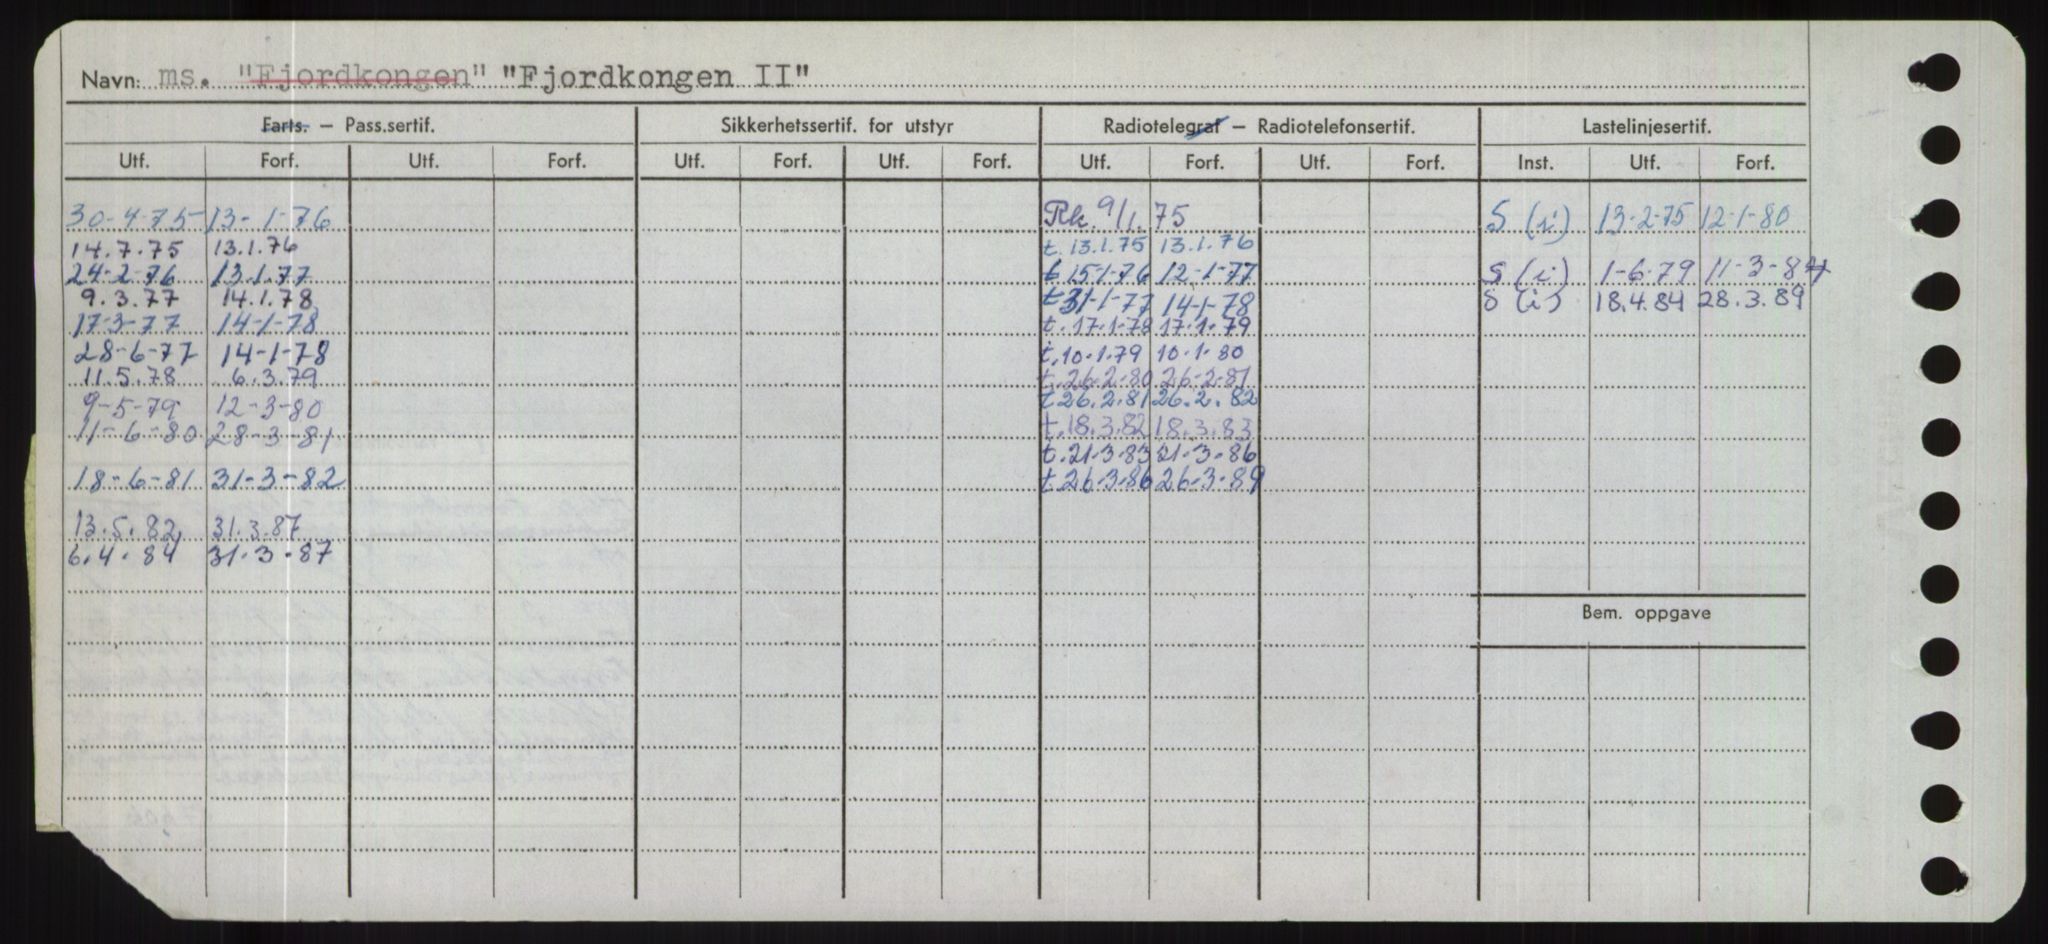 Navn: ms. "Fjordkongen" "Fjordkongen II"
Farts. – Pass.sertif. Sikkerhetssertif. for utstyr Radiotelegraf – Radiotelefonsertif. Lastelinjesertif.
Utf. Forf. Utf. Forf. Utf. Forf. Utf. Forf. Utf. Forf. Utf. Forf. Inst. Utf. Forf.
30-4-75 13-1-76 Rk. 9/1.75 S (i) 13-2-75 12-1-80
14.7.75 13.1.76 t. 13.1.75 13.1.76
24-2-76 13.1.77 t 15-1-76 12-1-77 S (i) 1-6-79 11-3-84
9.3.77 14.1.78 t 31-1-77 14-1-78 S (i) 18.4.84 28.3.89
17-3-77 14-1-78 t. 17.1-78 17.1.79
28-6-77 14-1-78 t. 10.1.79 10.1.80
11.5.78 6.3.79 t. 26.2.80 26.2.81
9-5-79 12-3-80 t 26.2.81 26.2.82
11-6-80 28-3-81 t. 18.3.82 18.3.83
t. 21.3.83 21.3.86
18-6-81 31-3-82 t. 26.3.86 26.3.89
13.5.82 31.3.87
6.4.84 31.3.87
Bem. oppgave